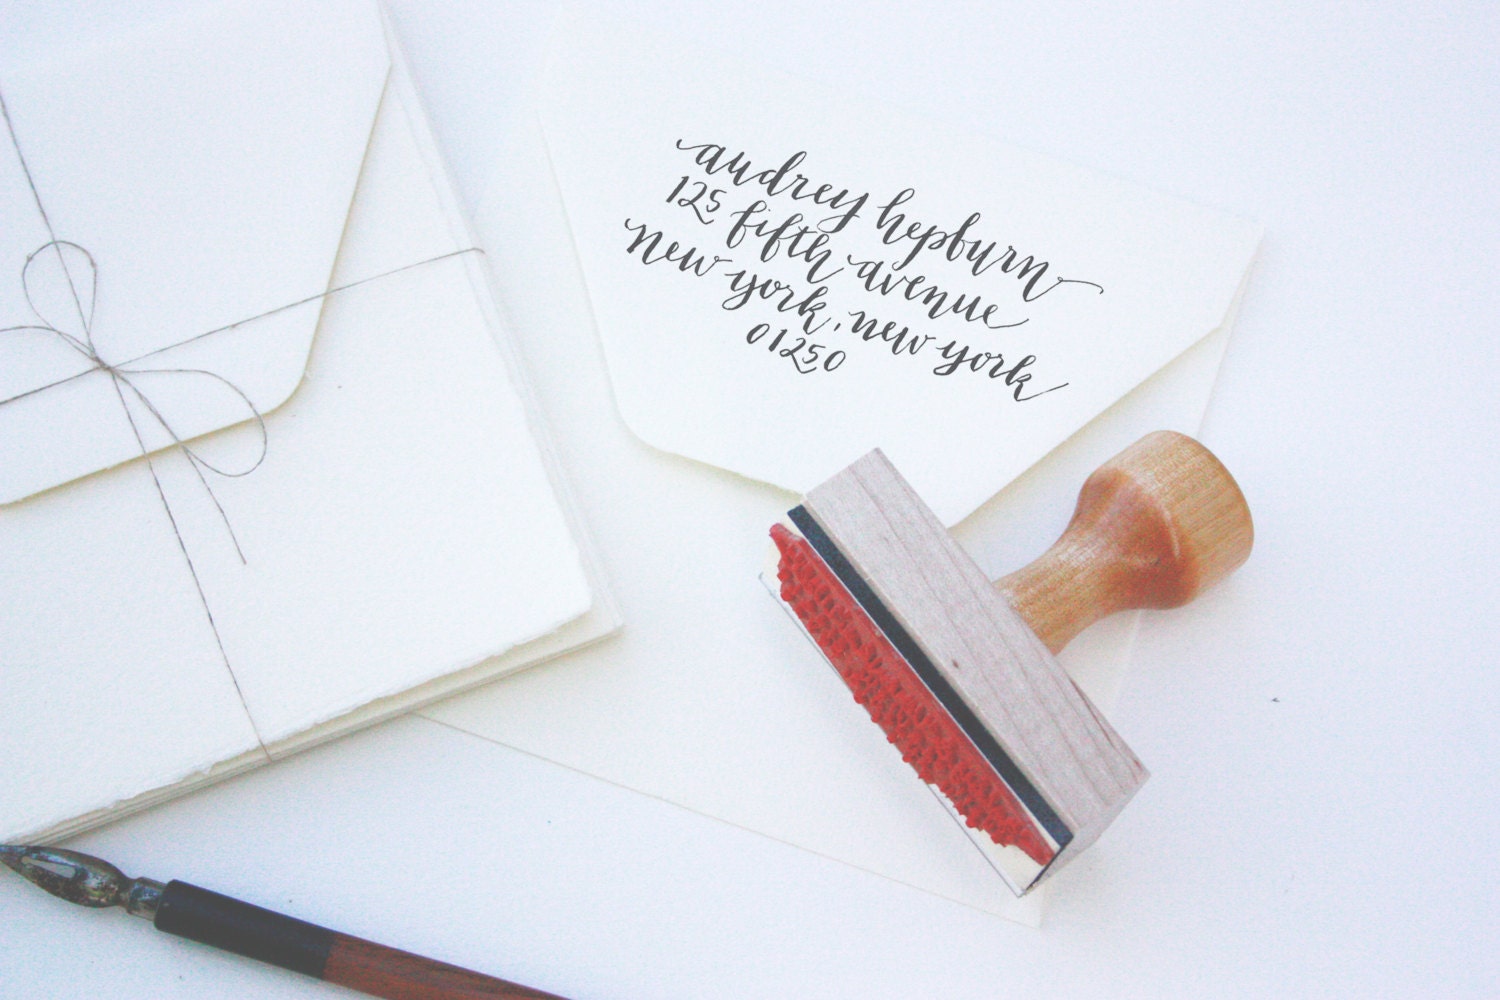 audrey hepburn
125 fifth avenue
new york, new york
01250